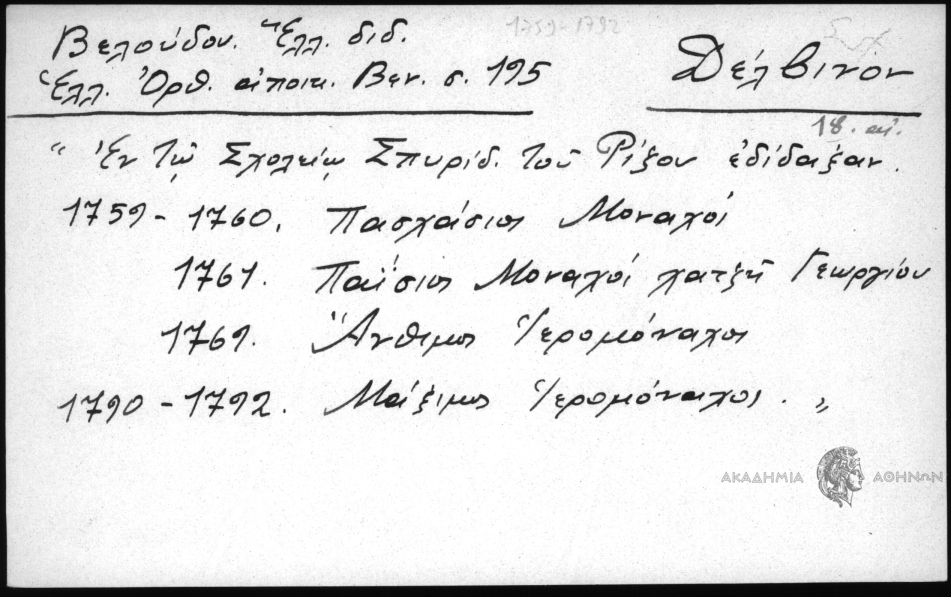 1759-1792
Βελούδου. Ἕλλ. διδ.
Ἑλλ. Ὀρθ. ἀποικ. Βεν. σ. 195
Δέλβινον
18. αἰ.
" Ἐν τῷ Σχολείῳ Σπυρίδ. τοῦ Ρίζου ἐδίδαξαν.
1759 - 1760. Πασχάσιος Μοναχός
1761. Παΐσιος Μοναχός χατζῆ Γεωργίου
1769. Ἄνθιμος Ἱερομόναχος
1790 - 1792. Μάξιμος Ἱερομόναχος. "
ΑΚΑΔΗΜΙΑ ΑΘΗΝΩΝ